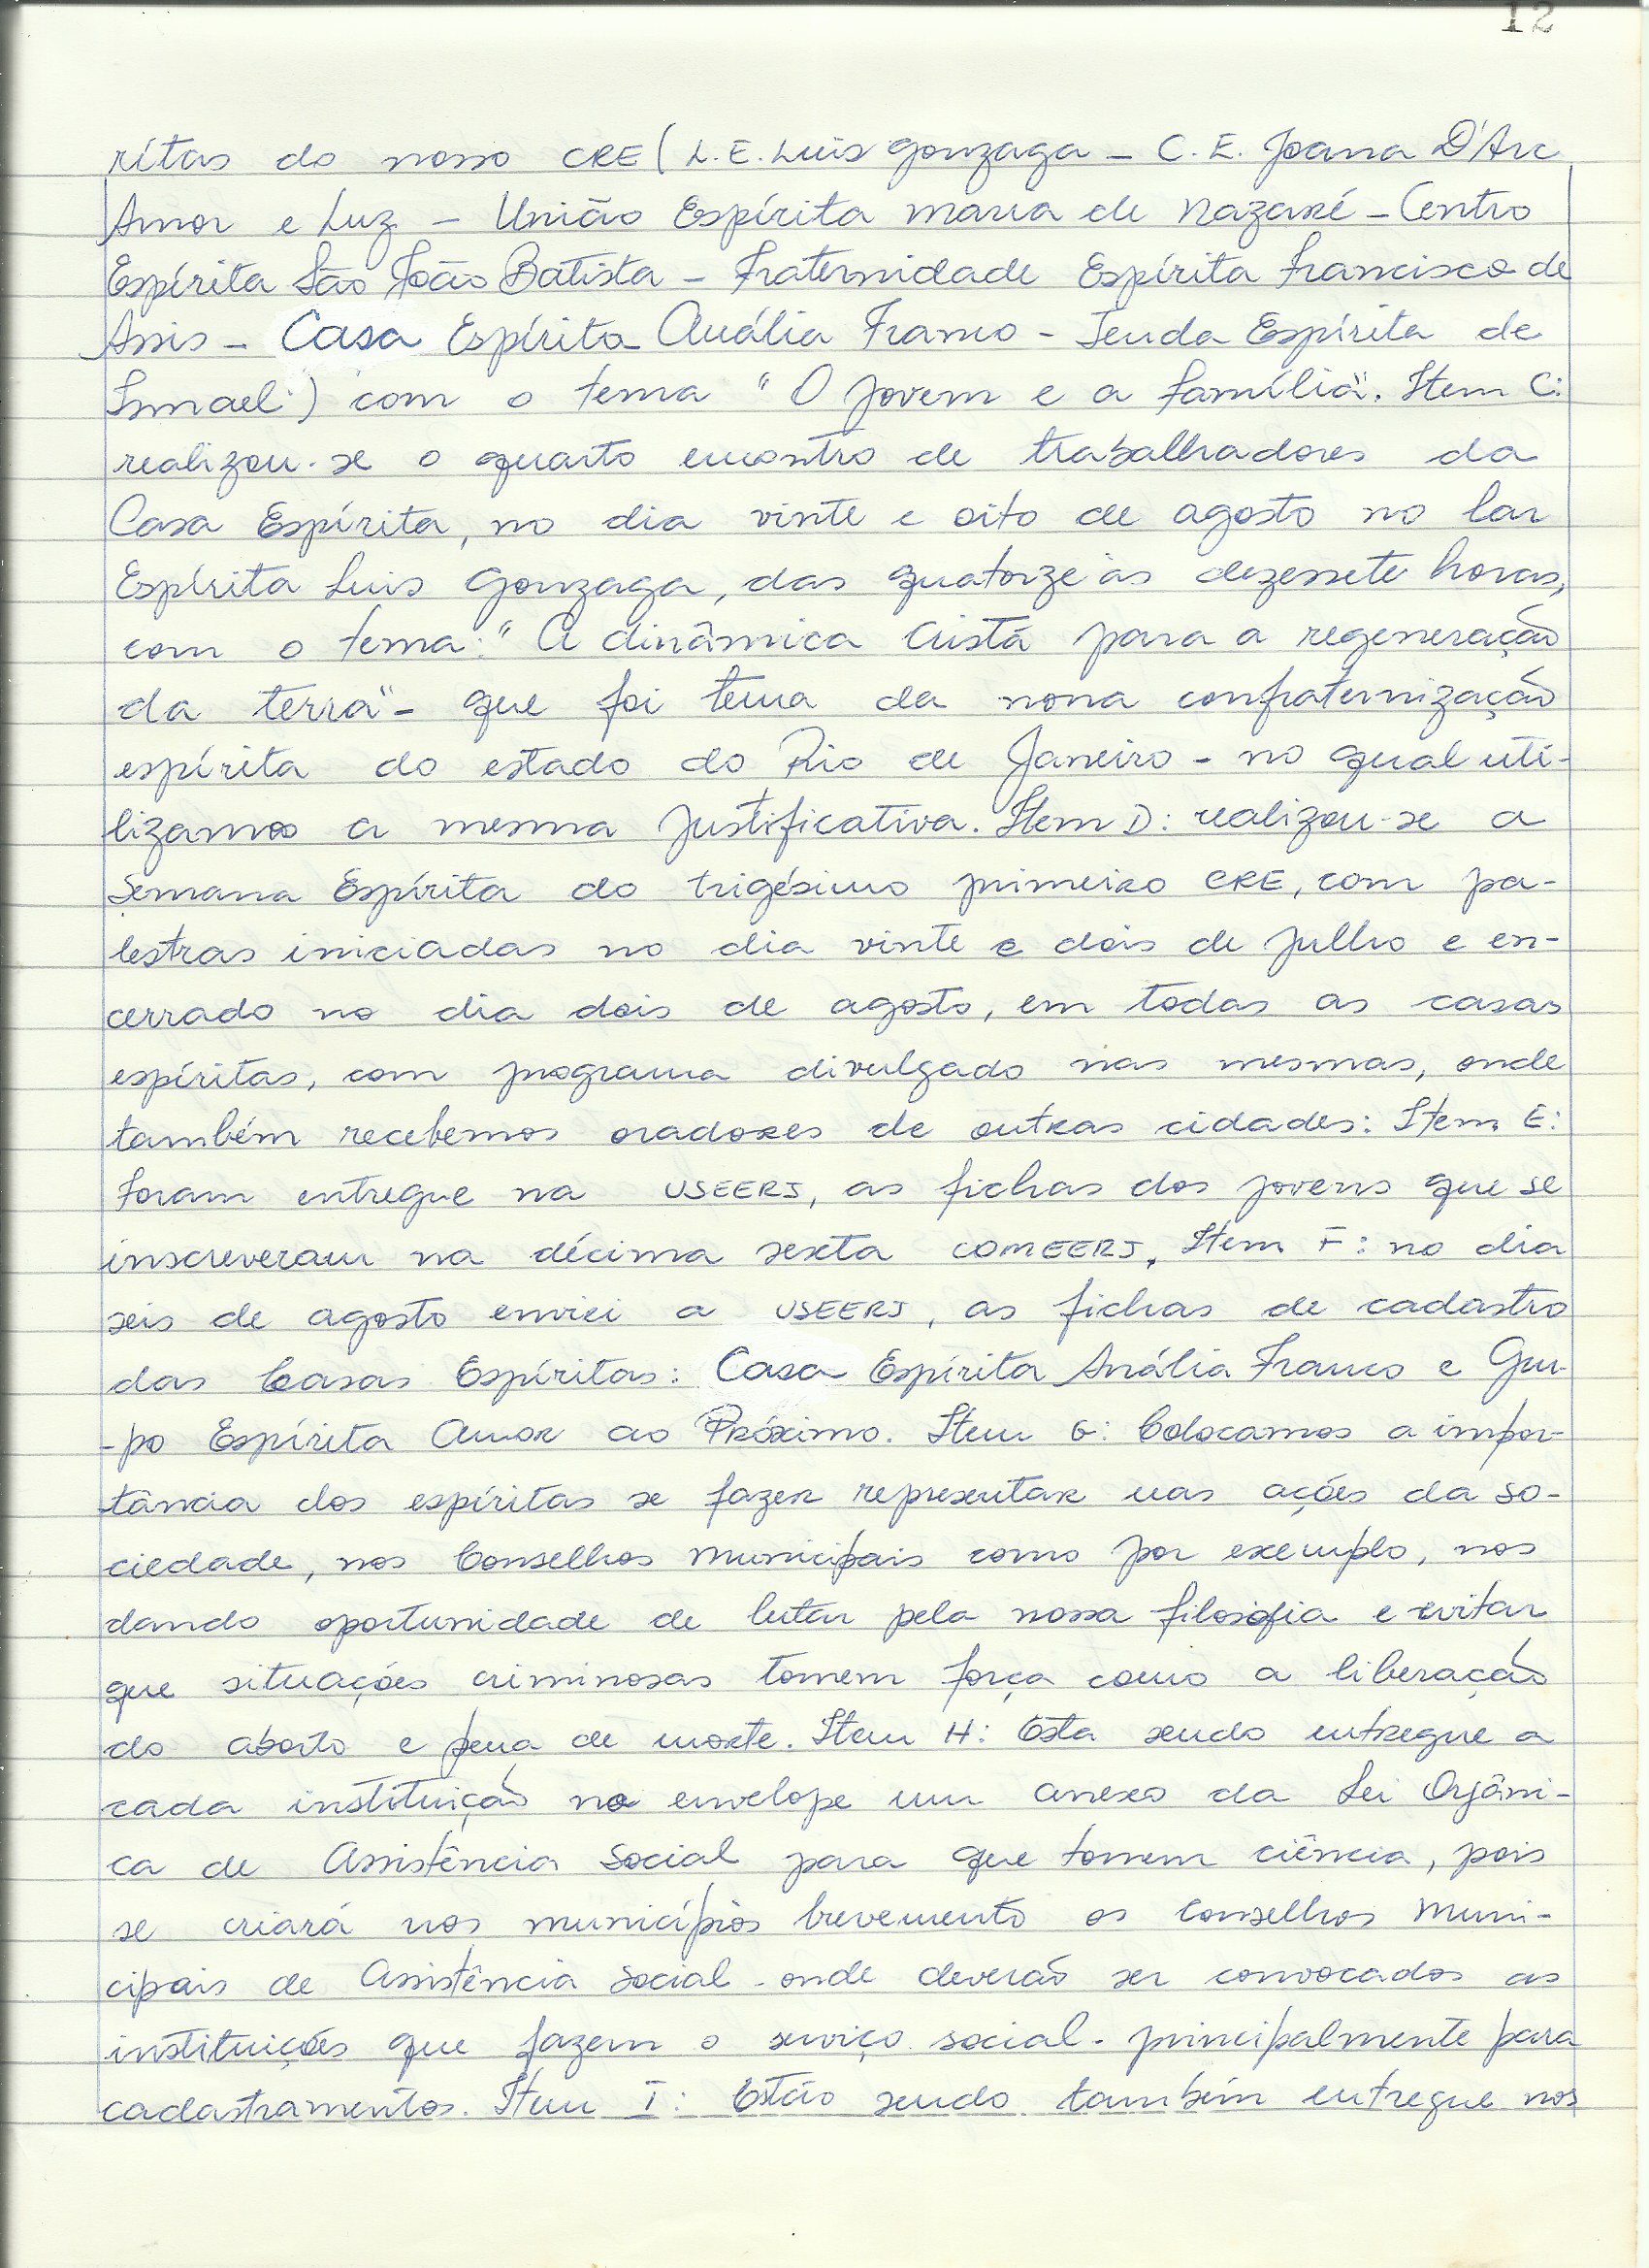 12
ritas do nosso CRE (L.E. Luis Gonzaga - C.E. Joana D'Arc
Amor e Luz - União Espírita Maria de Nazaré - Centro
Espírita São João Batista - Fraternidade Espírita Francisco de
Assis - Casa Espírita Anália Franco - Tenda Espírita de
Ismael) com o tema "O jovem e a família". Item C:
realizou-se o quarto encontro de trabalhadores da
Casa Espírita, no dia vinte e oito de agosto no lar
Espírita Luis Gonzaga, das quatorze às dezessete horas,
com o tema: "A dinâmica Cristã para a regeneração
da terra" - que foi tema da nona confraternização
espírita do estado do Rio de Janeiro - no qual uti-
lizamos a mesma justificativa. Item D: realizou-se a
Semana Espírita do trigésimo primeiro CRE, com pa-
lestras iniciadas no dia vinte e dois de julho e en-
cerrado no dia dois de agosto, em todas as casas
espíritas, com programa divulgado nas mesmas, onde
também recebemos oradores de outras cidades: Item E:
foram entregue na USEERJ, as fichas dos jovens que se
inscreveram na décima sexta COMEERJ. Item F: no dia
seis de agosto enviei a USEERJ, as fichas de cadastro
das Casas Espíritas: Casa Espírita Anália Franco e Gru-
-po Espírita Amor ao Próximo. Item G: Colocamos a impor-
tância dos espíritas se fazer representar nas ações da so-
ciedade, nos Conselhos Municipais como por exemplo, nos
dando oportunidade de lutar pela nossa filosofia e evitar
que situações criminosas tomem força como a liberação
do aborto e pena de morte. Item H: Esta sendo entregue a
cada instituição no envelope um anexo da Lei Orgâni-
ca de Assistência Social para que tomem ciência, pois
se criará nos municípios brevemente os Conselhos Muni-
cipais de Assistência Social - onde deverão ser convocados as
instituições que fazem o serviço social - principalmente para
cadastramentos. Item I: Estão sendo também entregue nos